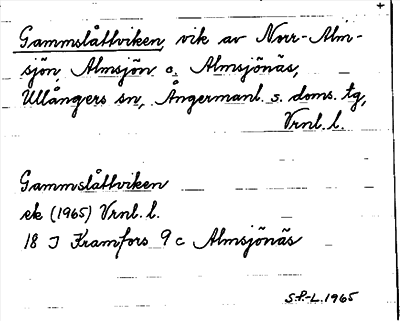 Gammslåttviken, vik av Norr-Alm-
sjön, Almsjön o. Almsjönäs,
Ullångers sn, Ångermanl. s. doms. tg,
Vrnl. l.
Gammslåttviken
ek (1965) Vrnl. l.
18 J Kramfors 9 c Almsjönäs
S.P.-L. 1965